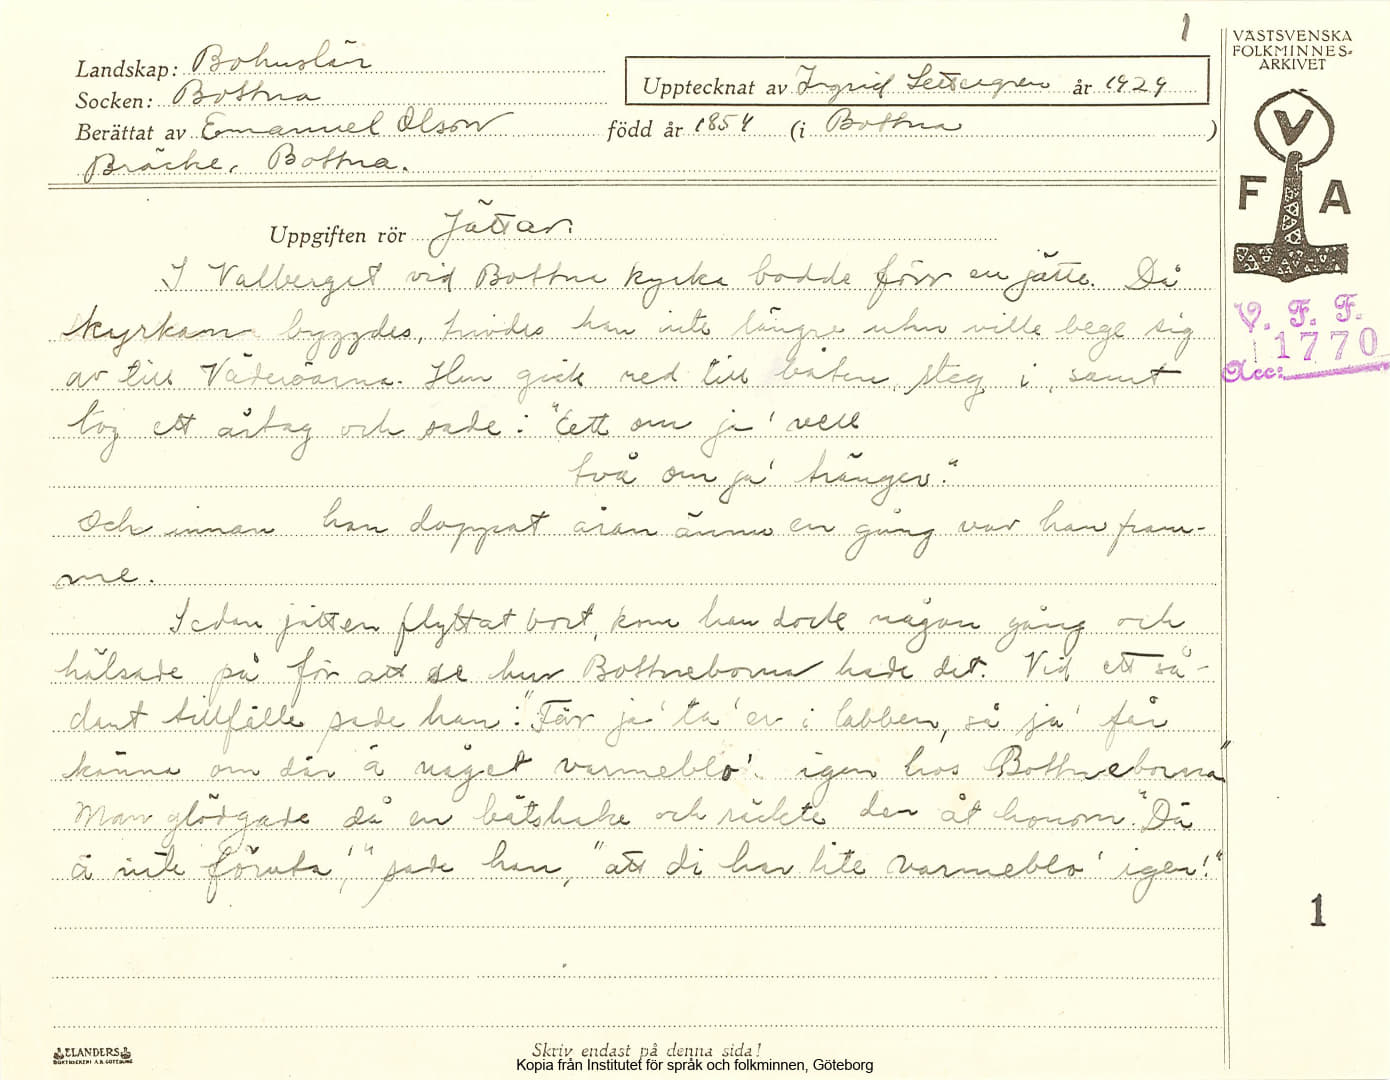 1
VÄSTSVENSKA
FOLKMINNES-
ARKIVET
Landskap: Bohuslän
Socken: Bottna
Upptecknat av Ingrid år 1929
Berättat av Emanuel Olson född år 1854 (i Bottna )
Bräcke, Bottna.
V
F A
Uppgiften rör Jättar.
I Valberget vid Bottna kyrka bodde förr en jätte. Då
kyrkan byggdes, trivdes han inte längre utan ville bege sig
av till Väderöarna. Han gick ned till båten, steg i, samt
tog ett årtag och sade: "Ett om ja' vell
två om ja' tränger."
Och innan han doppat åran ännu en gång var han fram-
me.
Sedan jätten flyttat bort, kom han dock någon gång och
hälsade på för att se hur Bottneborna hade det. Vid ett så-
dant tillfälle sade han: "Får ja' ta' er i labben, så ja' får
känna om där ä något varmeblo' igen hos Bottneborna"
Man glödgade då en båtshake och räckte den åt honom. "Dä
ä inte föruta'," sade han, "att di har lite varmeblo' igen!"
V. F. F.
1770
Acc:
1
ELANDERS
BOKTRYCKERI A.B. GÖTEBORG
Skriv endast på denna sida!
Kopia från Institutet för språk och folkminnen, Göteborg